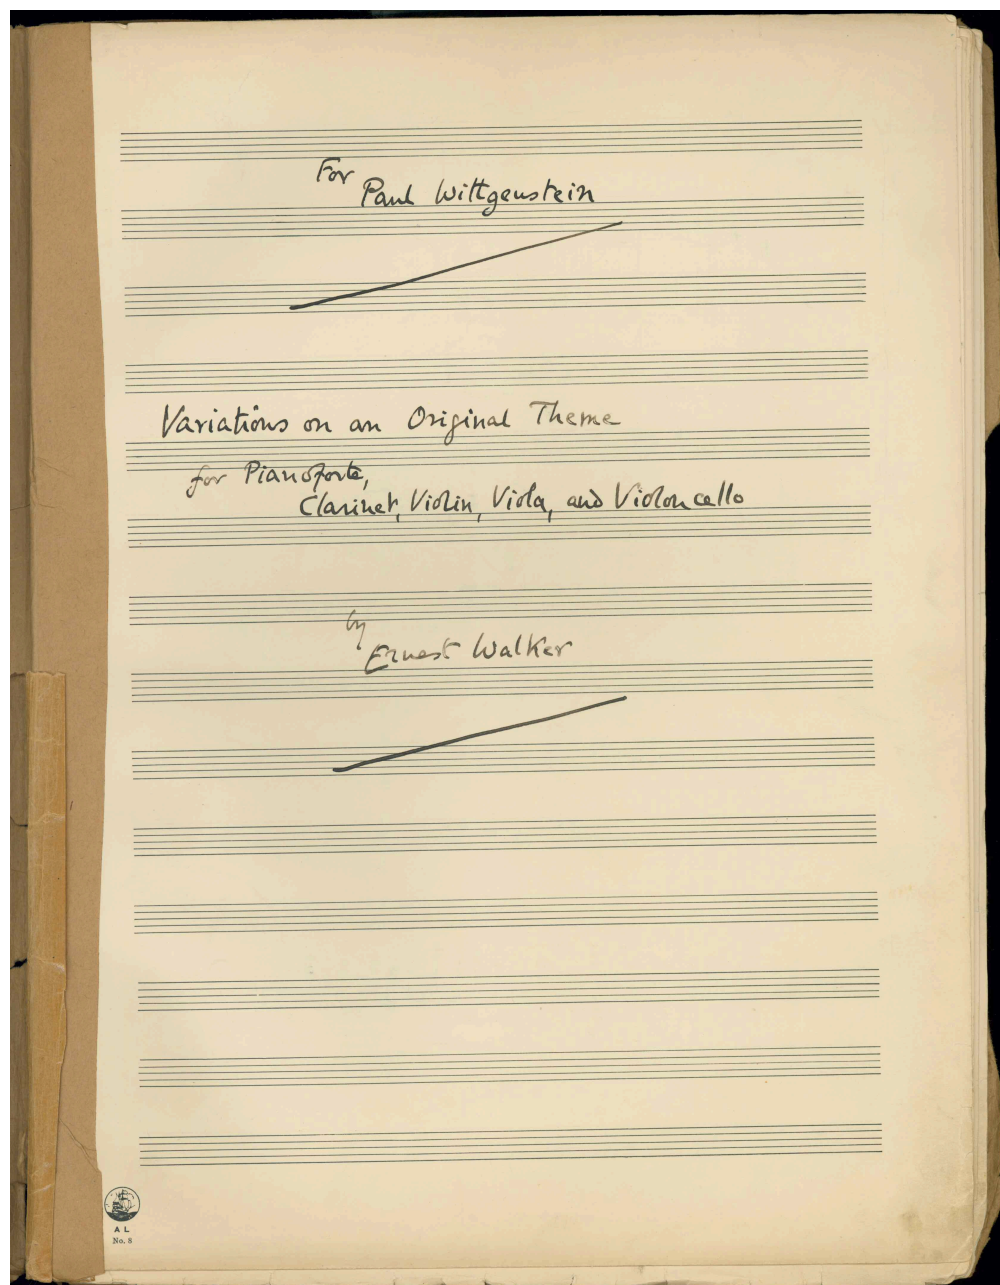 For
Paul Wittgenstein
Variations on an Original Theme
for Pianoforte,
Clarinet, Violin, Viola, and Violoncello
by
Ernest Walker
A L
No. 8